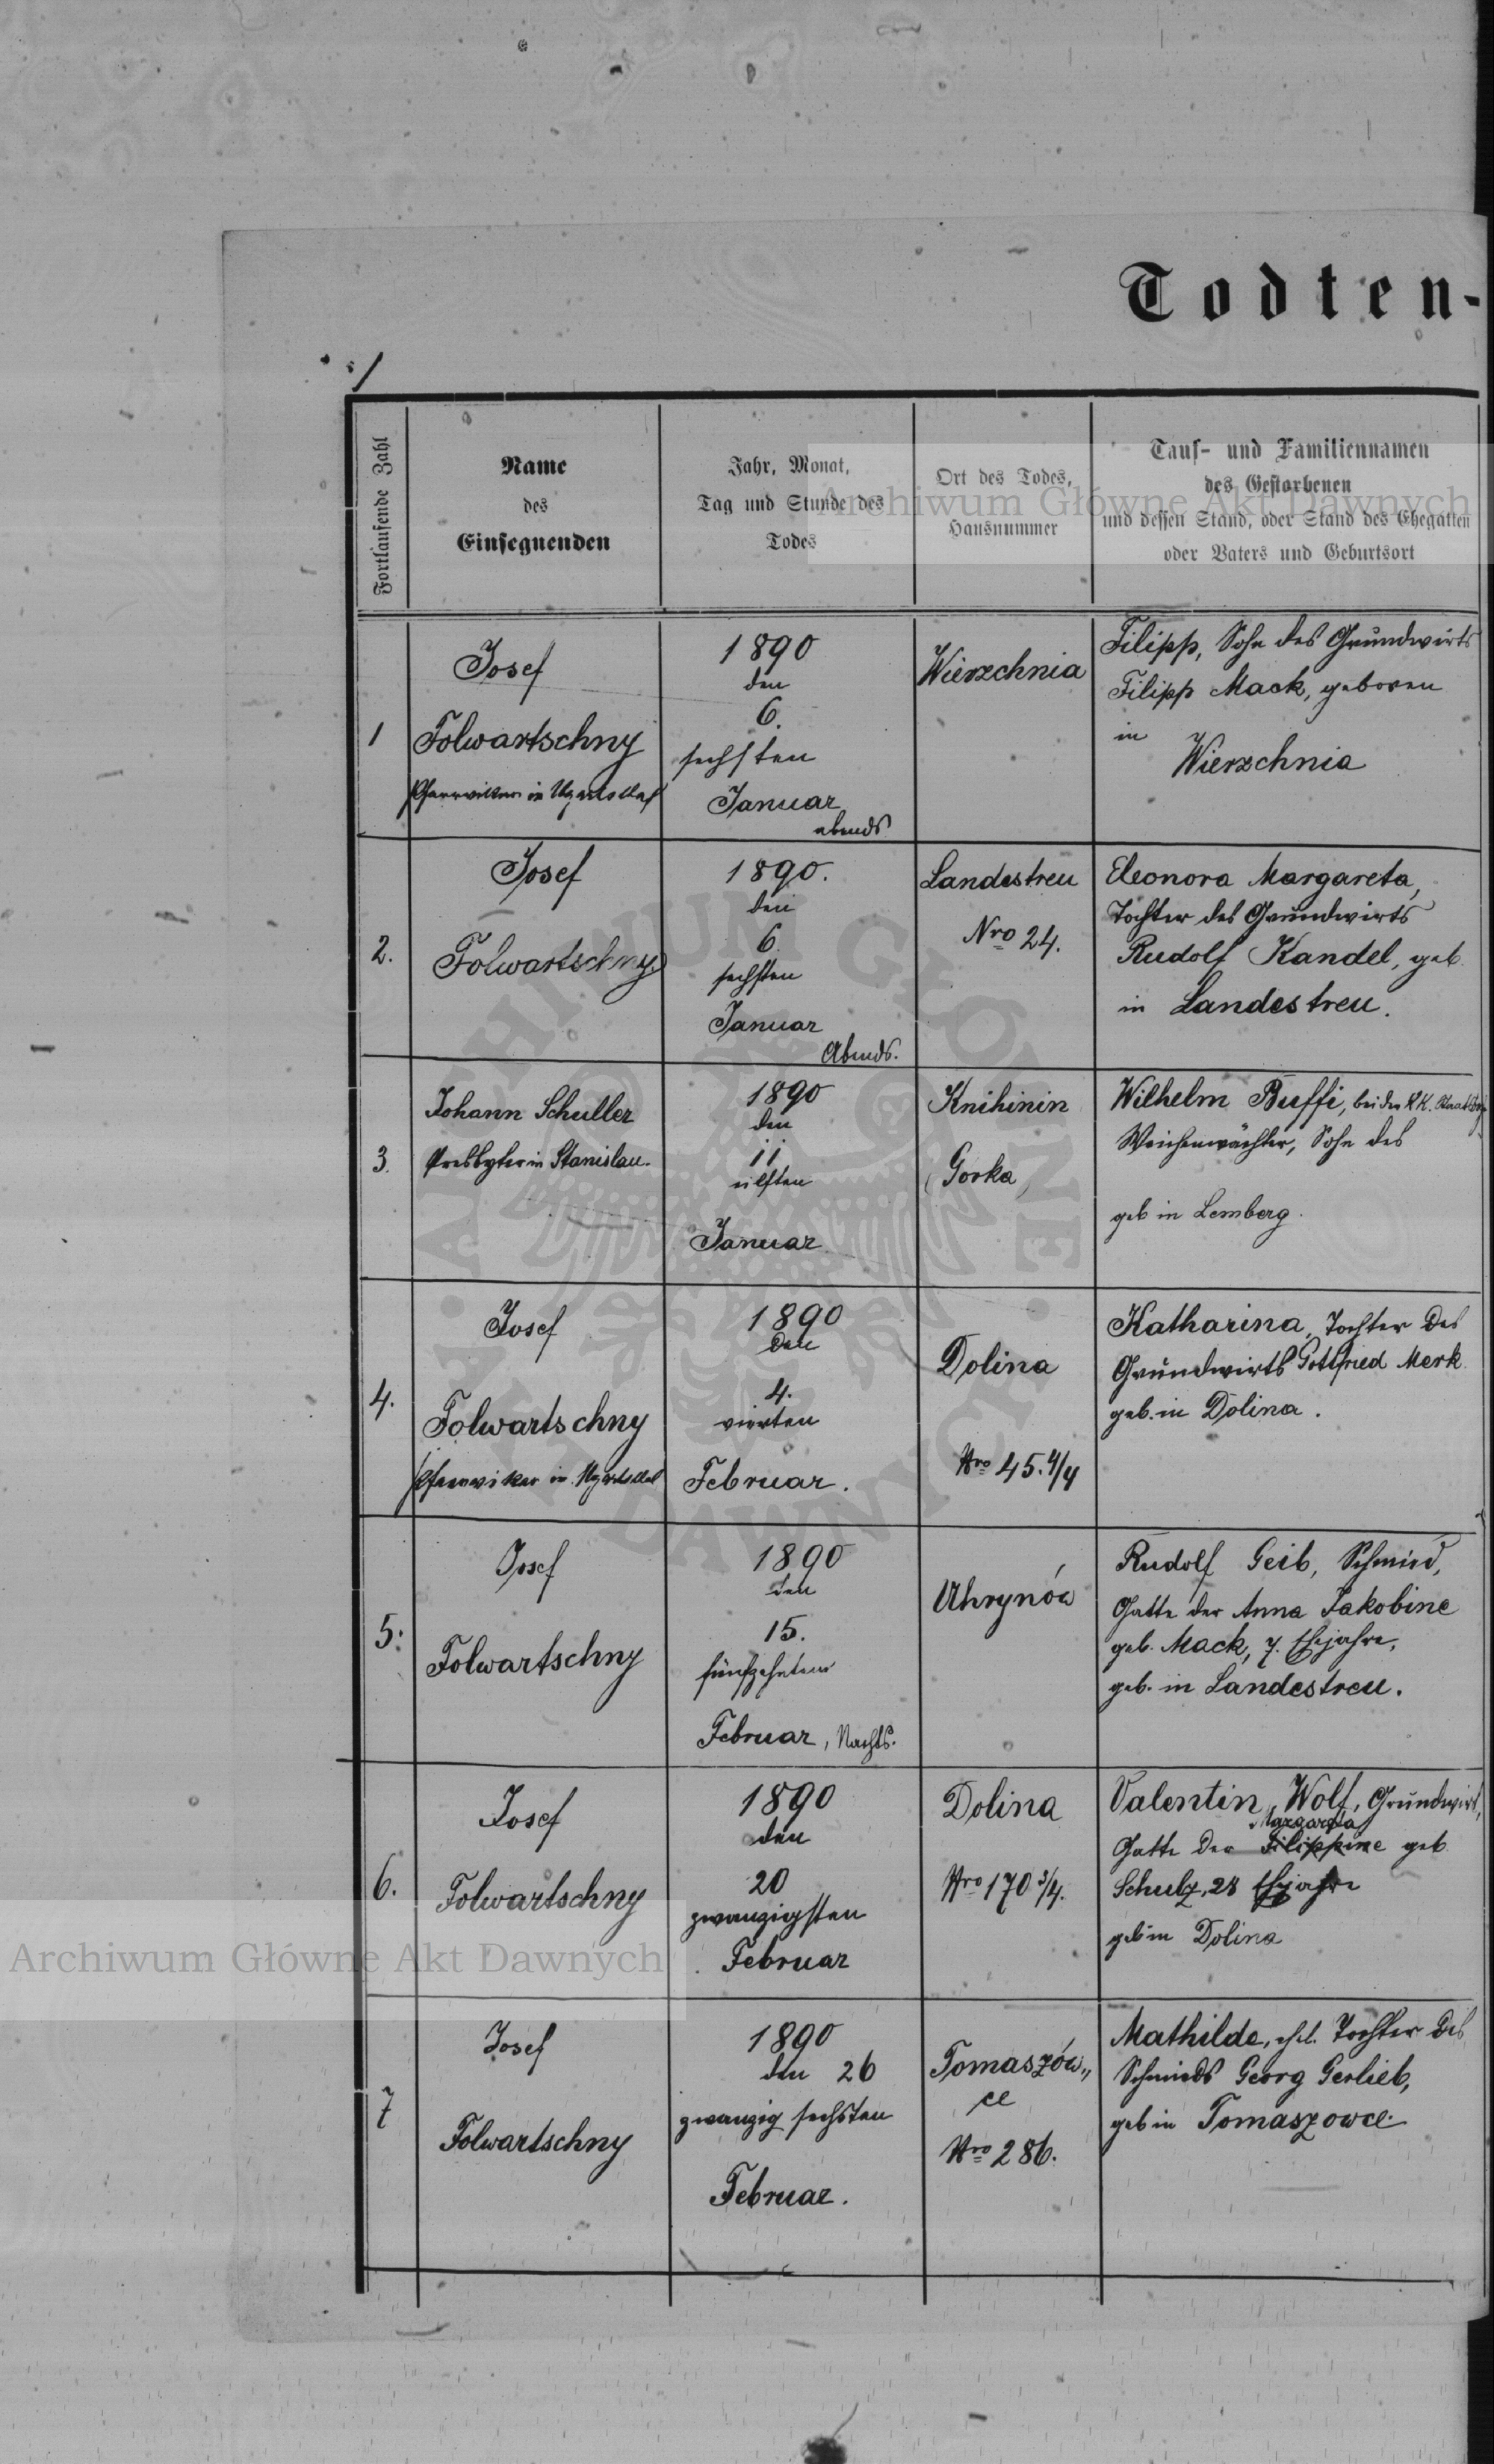 Todten-
1
Fortlaufende Zahl
Name
des
Einsegnenden
Jahr, Monat,
Tag und Stunde des
Todes
Ort des Todes,
Hausnummer
Tauf- und Familiennamen
des Gestorbenen
und dessen Stand, oder Stand des Ehegatten
oder Vaters und Geburtsort
Archiwum Główne Akt Dawnych
1
Josef
Folwartschny
Pfarrvikar in Ugartsthal
1890
den
6.
sechsten
Januar
abends
Wierzchnia
Filipp, Sohn des Grundwirts
Filipp Mack, geboren
in
Wierzchnia
2.
Josef
Folwartschny
1890.
den
6
sechsten
Januar
Abends.
Landestreu
Nro 24.
Eleonora Margareta,
Tochter des Grundwirts
Rudolf Kandel, geb.
in Landestreu.
3.
Johann Schuller
Presbyter in Stanislau.
1890
den
11
eilften
Januar
Knihinin
(Gorka)
Wilhelm Buffi, bei der K.K.
Weichenwächter, Sohn des
geb in Lemberg.
4.
Josef
Folwartschny
Pfarrvikar in Ugartsthal
1890
den
4.
vierten
Februar.
Dolina
Nro 45.4/4
Katharina, Tochter des
Grundwirts Gottfried Merk
geb. in Dolina.
5.
Josef
Folwartschny
1890
den
15.
fünfzehnten
Februar, Nachts.
Uhrynów
Rudolf Geib, Schmied,
Gatte der Anna Jakobine
geb. Mack, 7. Ehejahre,
geb. in Landestreu.
6.
Josef
Folwartschny
1890
den
20
zwanzigsten
Februar
Dolina
Nro 170 3/4.
Valentin Wolf, Grundwirt,
Margareta
Gatte der Filippine geb
Schulz, 28 Ehejahre
geb in Dolina
Archiwum Główne Akt Dawnych
7
Josef
Folwartschny
1890
den 26
zwanzig sechsten
Februar.
Tomaszów„
ce
Nro 286.
Mathilde, ehel. Tochter des
Schmieds Georg Gerlieb,
geb in Tomaszowce.
ARCHIWUM GŁÓWNE · AKT DAWNYCH ·